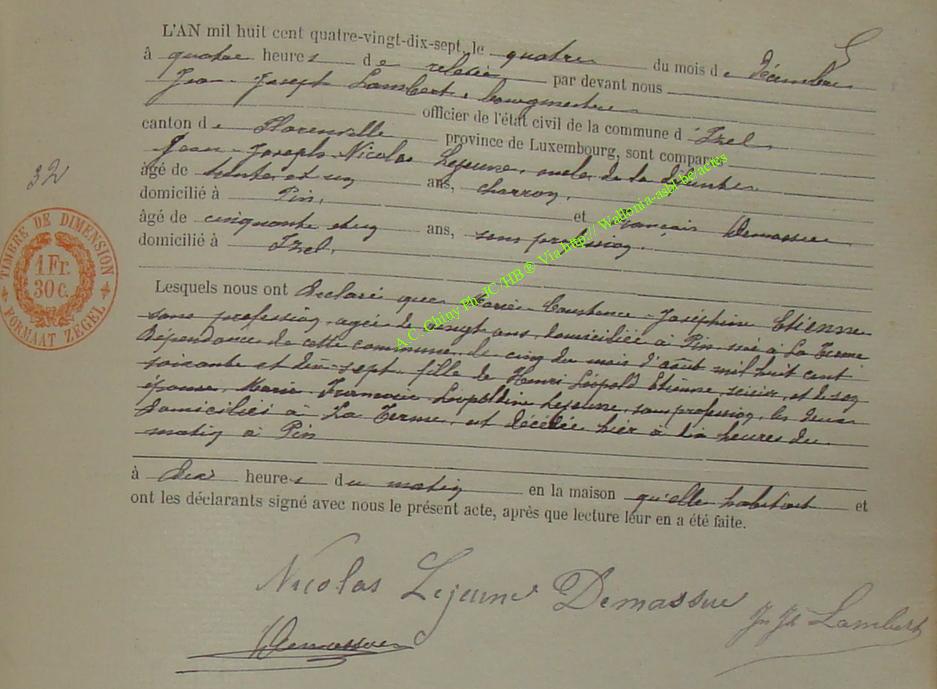 L'AN mil huit cent quatre-vingt-dix-sept, le quatre du mois de Décembre
à quatre heures de relevée par devant nous
Jean-Joseph Lambert, bourgmestre
officier de l'état civil de la commune d'Izel
canton de Florenville province de Luxembourg, sont comparus
Jean-Joseph-Nicolas Lejeune, oncle de la défunte
âgé de trente et un ans, charron,
domicilié à Pin, et François Demassue
âgé de cinquante cinq ans, sans profession,
domicilié à Izel.
Lesquels nous ont déclaré que Marie Constance-Joséphine Etienne
sans profession, agée de vingt ans, domiciliée à Pin, née à La Terme
dépendance de cette commune, le cinq du mois d'août mil huit cent
soixante et dix-sept fille de Henri Léopold Etienne, et de son
épouse, Marie Françoise Léopoldine Lejeune, sans profession, les deux
domiciliés à La Terme, est décédée hier à dix heures du
matin à Pin
à dix heures du matin en la maison qu'elle habitait et
ont les déclarants signé avec nous le présent acte, après que lecture leur en a été faite.
Nicolas Lejeune Demassue
Jn Jh Lambert
Demassue
32
TIMBRE DE DIMENSION
1 Fr.
30 c.
FORMAAT ZEGEL
A.C. Chiny Ph JC/HB ® Via http//Wallonia-asbl.be/actes